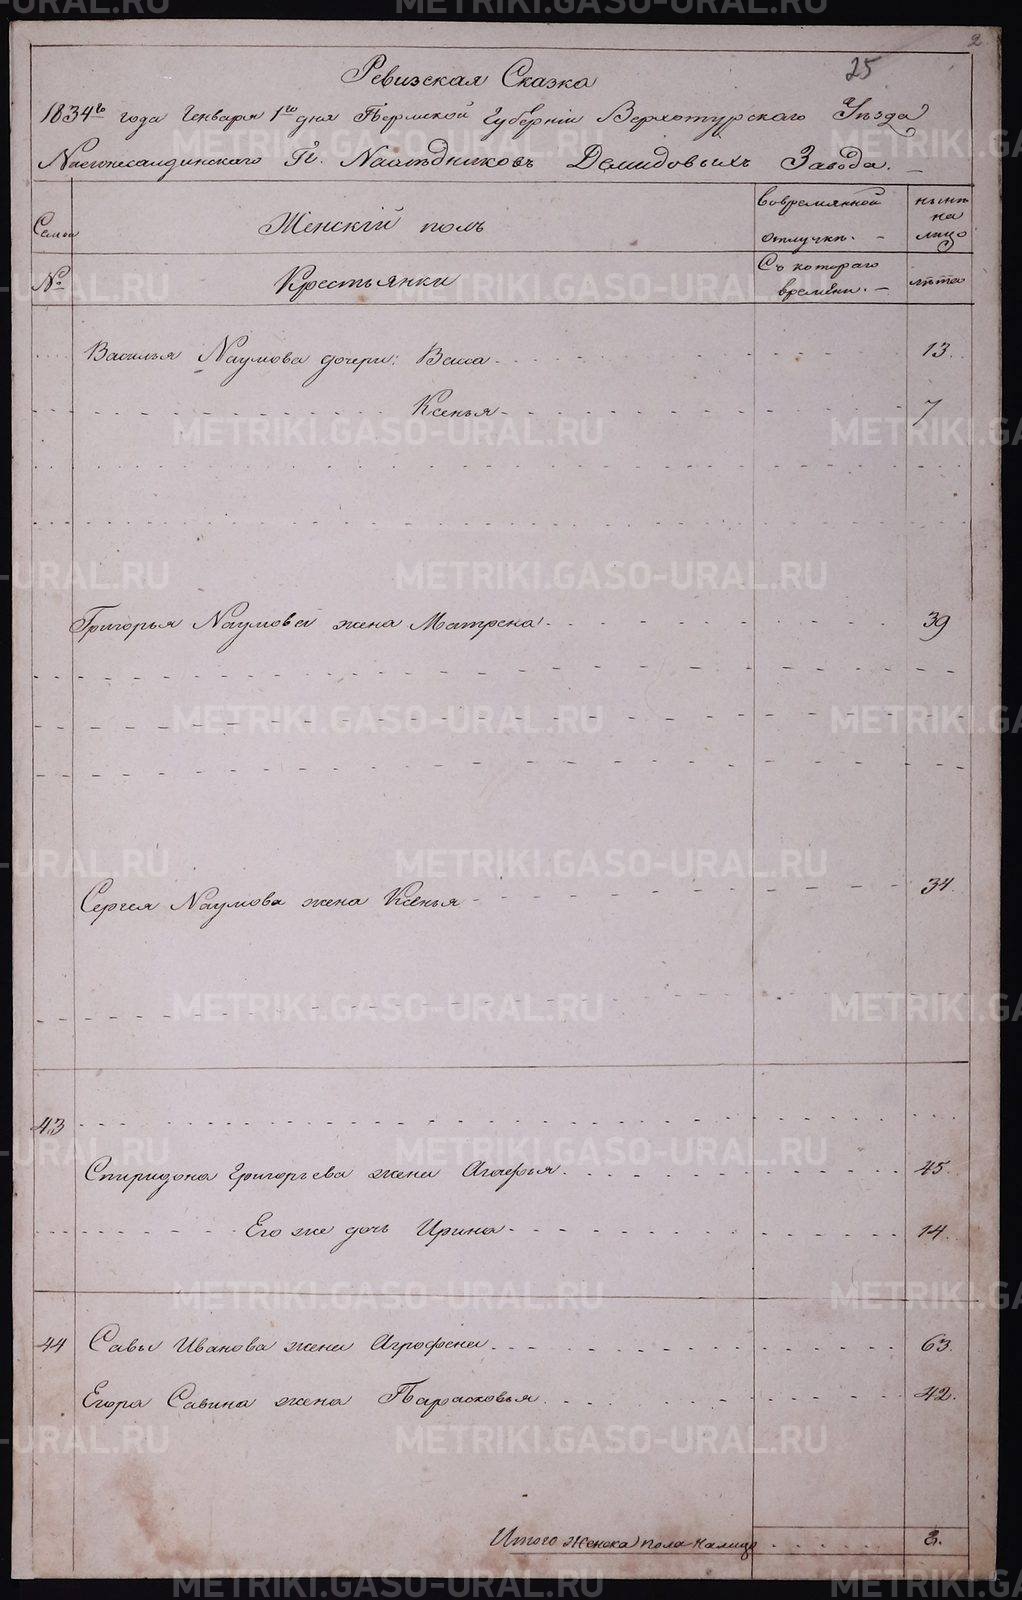 2
25
Ревизская Сказка
1834го года Генваря 1го дня Пермской Губерніи Верхотурскаго Уѣзда
Нижнесалдинскаго Гг. Наслѣдниковъ Демидовыхъ Завода.
Семьи Женскій полъ Вовремянной отлучки. нынѣ на лицо
№ Крестьянки Съ котораго времѣни. лѣта
Василья Наумова дочери: Васа 13.
Ксенья 7
Григорья Наумова жена Матрена 39
Сергея Наумова жена Ксенья 34.
43
Спиридона Григорьева жена Агафья 45.
Его же дочь Ирина 14.
44 Савы Иванова жена Аграфена 63.
Егора Савина жена Парасковья 42.
Итого женска пола налицо 8.
METRIKI.GASO-URAL.RU